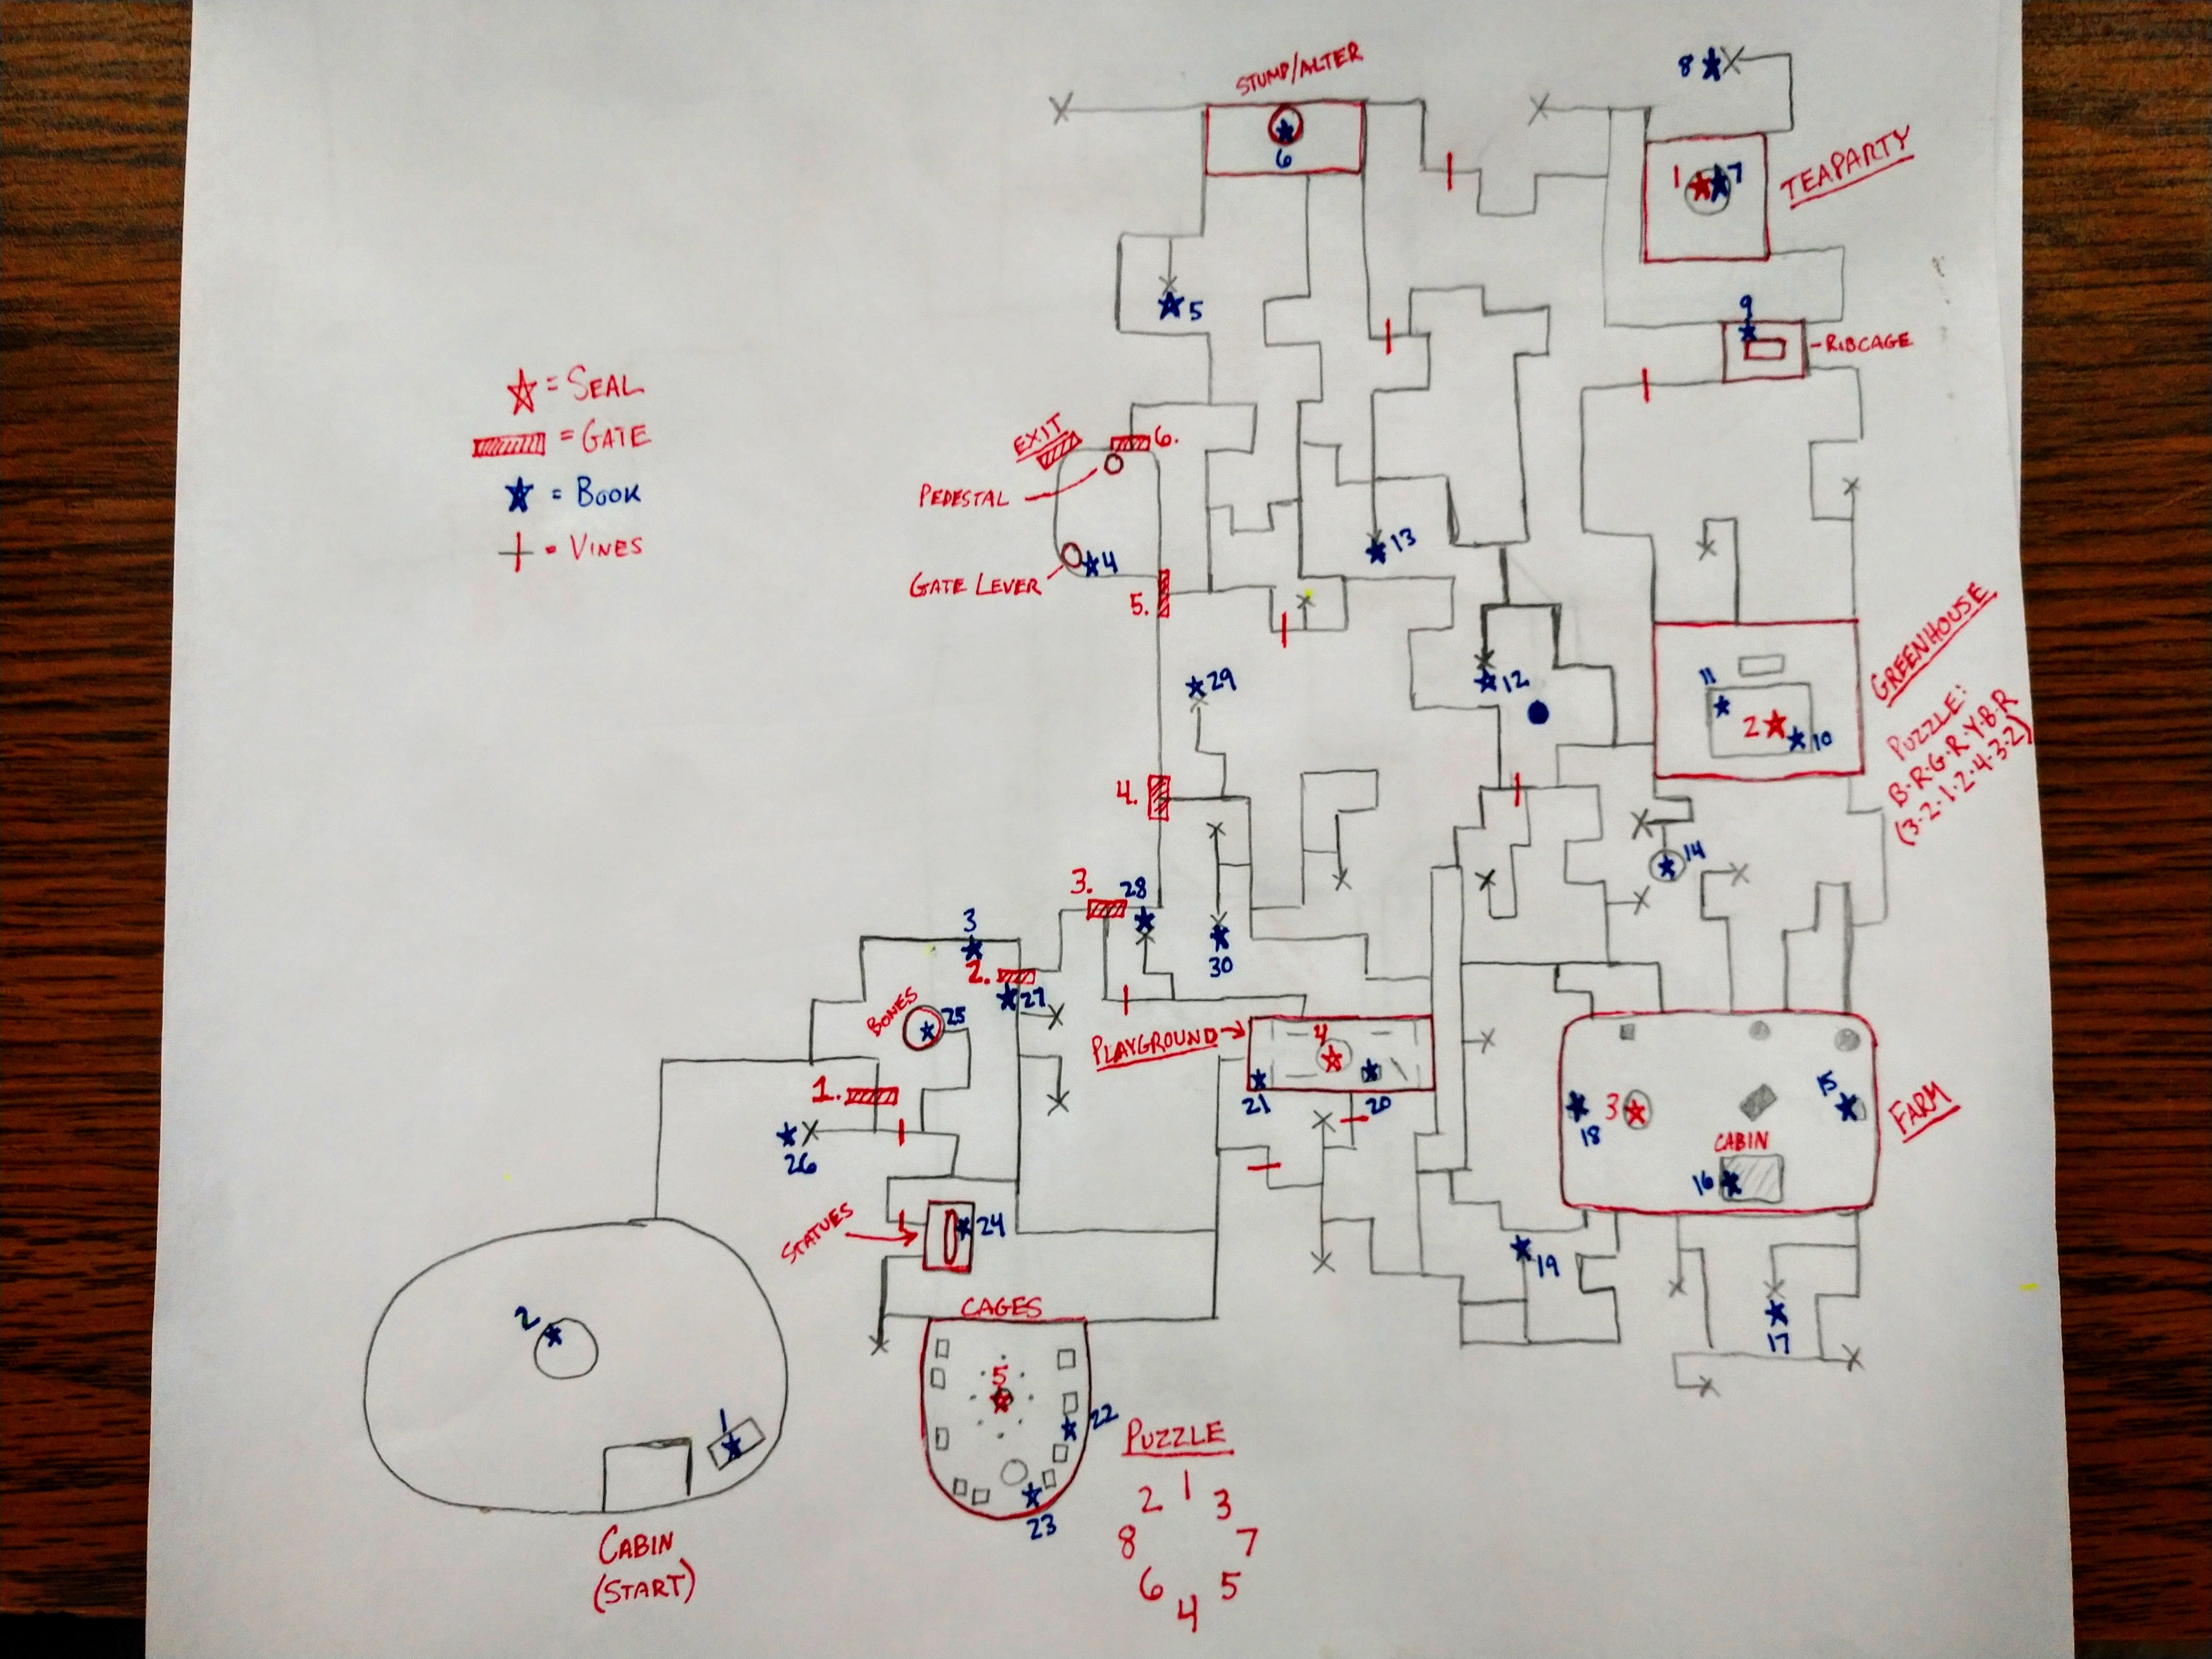 STUMP/ALTER
6
8
1
7
TEAPARTY
5
9
-RIBCAGE
= SEAL
= GATE
= BOOK
= VINES
EXIT
6.
PEDESTAL
4
GATE LEVER
5.
13
12
29
11
2
10
GREENHOUSE
PUZZLE:
B·R·G·R·Y·B·R
(3·2·1·2·4·3·2)
4.
14
3.
28
30
3
2.
27
BONES
25
1.
26
PLAYGROUND
4
21
20
18
3
15
CABIN
16
FARM
STATUES
24
19
17
CAGES
5
22
23
2
1
CABIN
(START)
PUZZLE
1
2 3
8 7
6 5
4